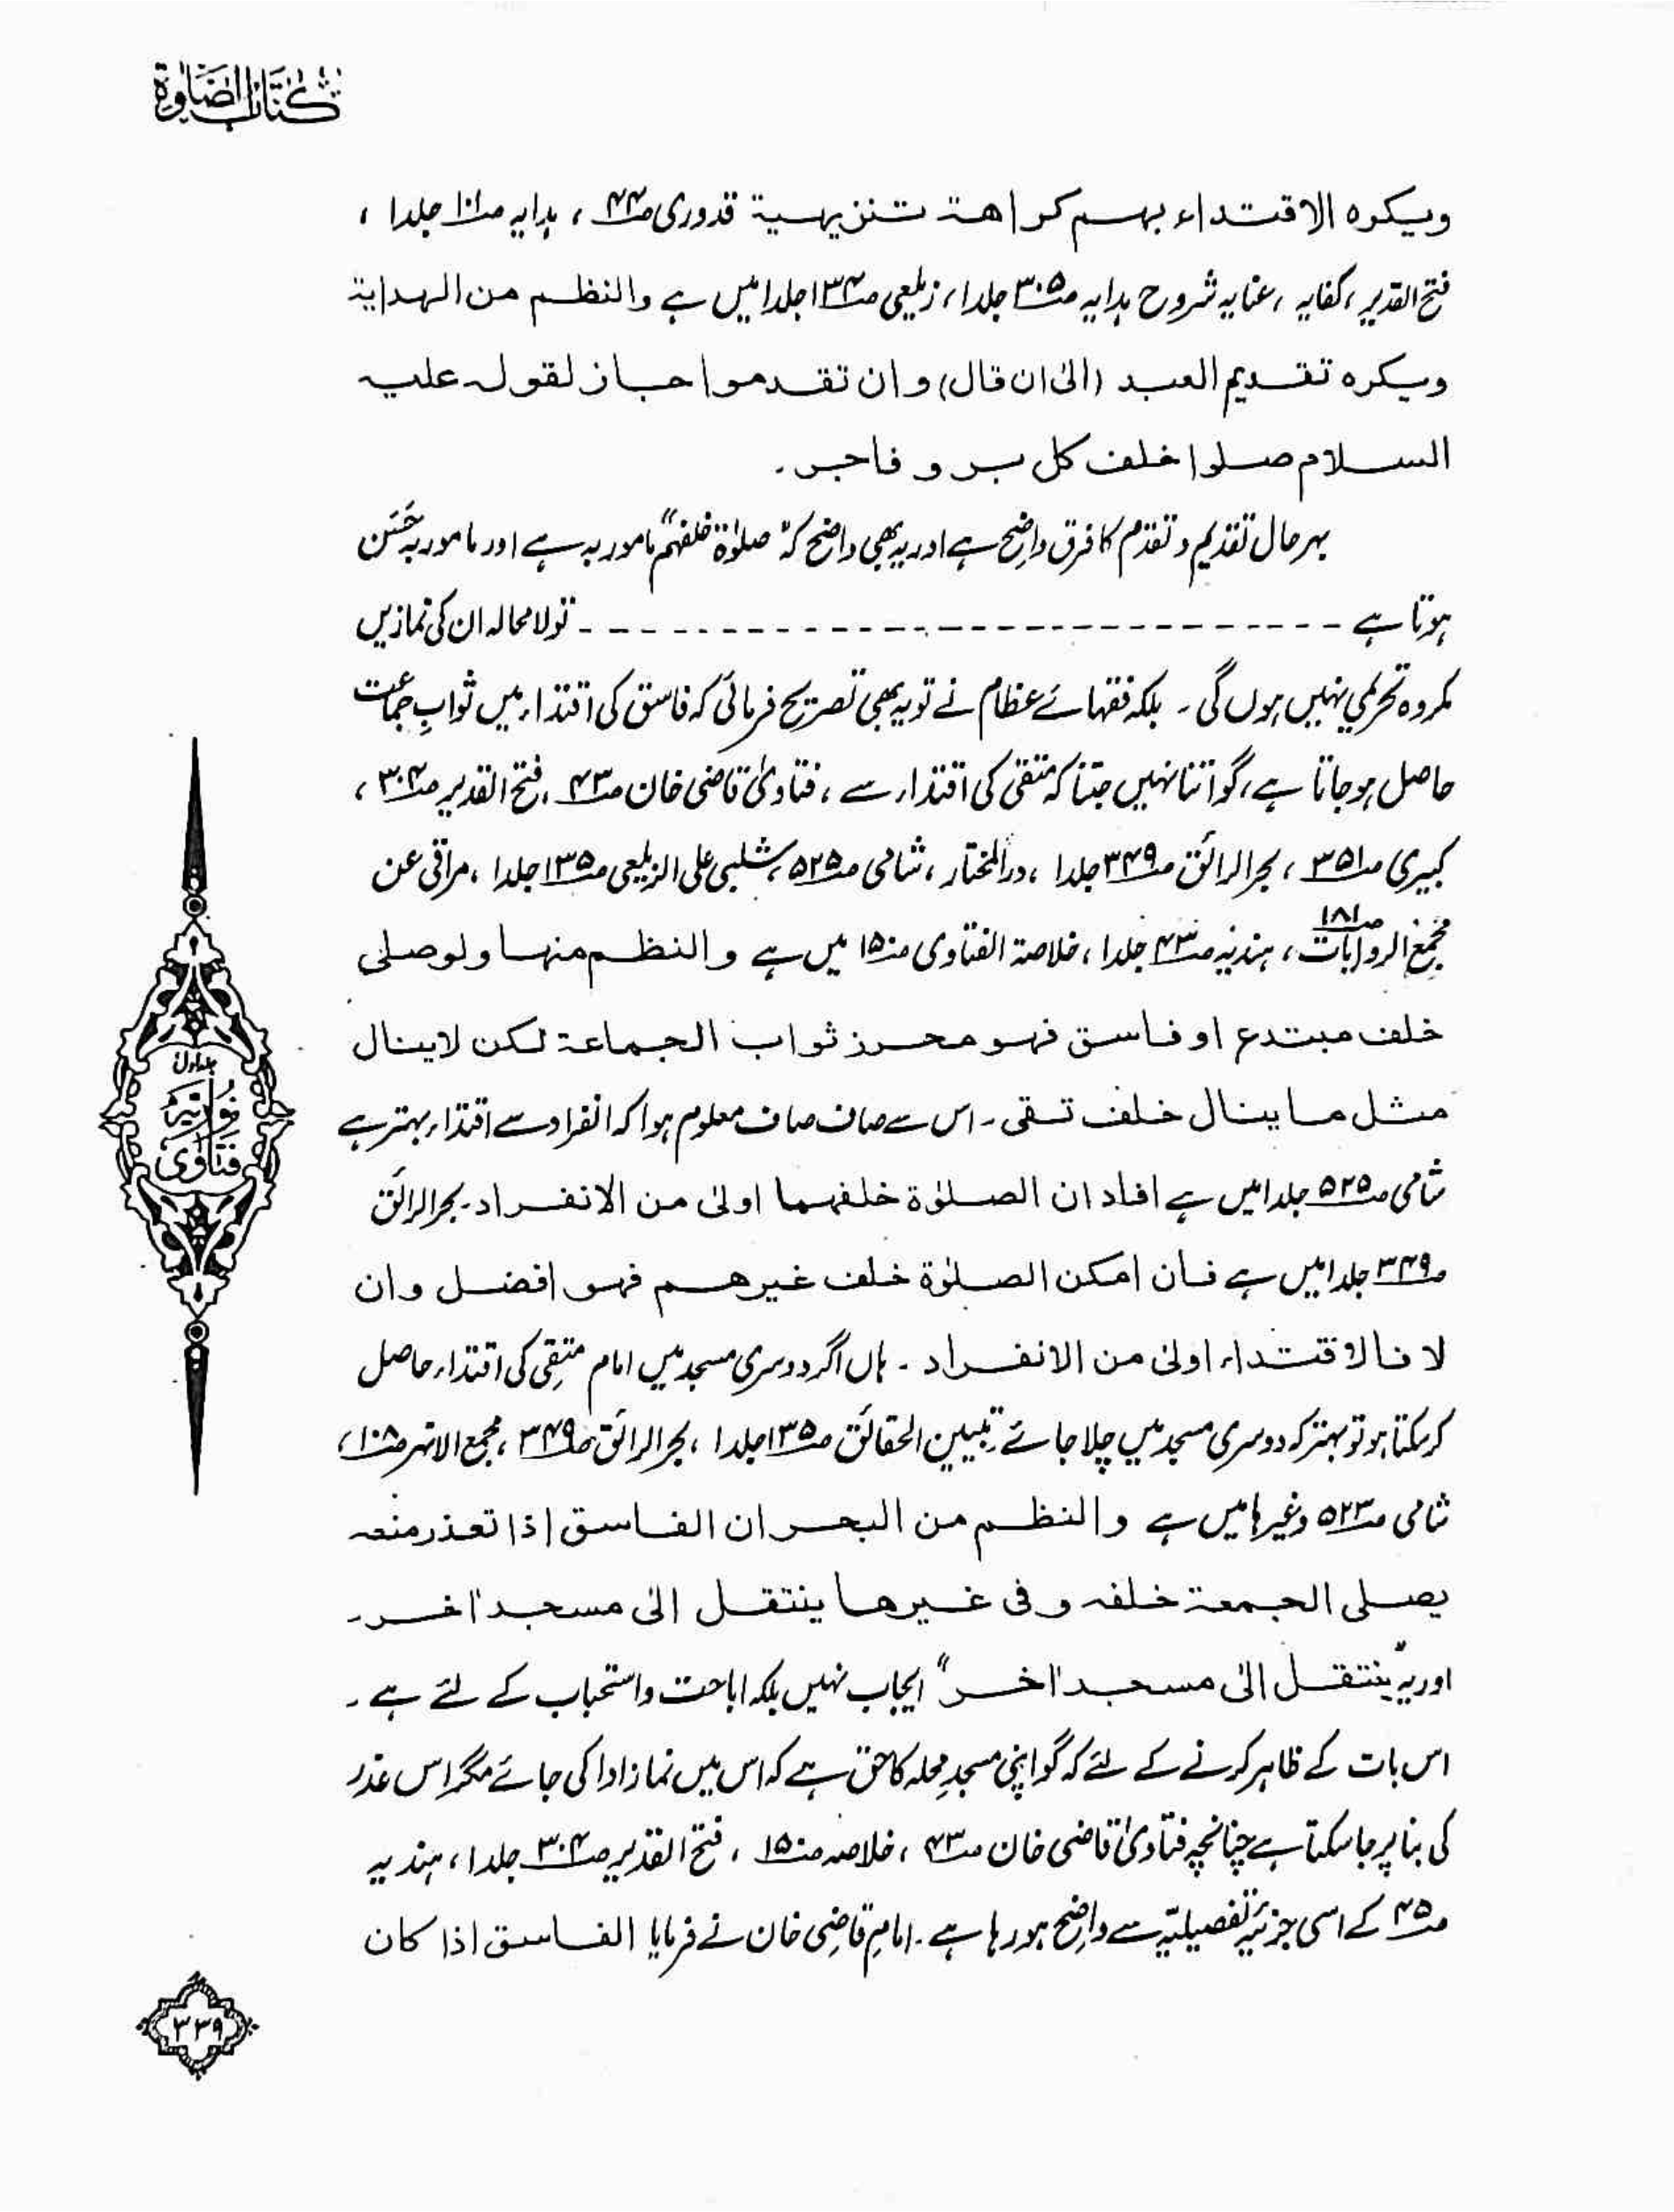 كتاب الصلوة
ويكره الاقتداء بهم كراهة تنزيهية قدوری ص۴۴ ، ہدایہ ص۱۰۱ جلد۱ ،
فتح القدیر ، کفایہ ، عنایہ شروح ہدایہ ص۳۰۵ جلد۱ ، زیلعی ص۱۳۴ جلد۱ میں ہے والنظم من الهداية
ويكره تقديم العبد (الیٰ ان قال) وان تقدموا جاز لقوله عليه
السلام صلوا خلف كل بر و فاجر ۔
بہر حال تقدیم و تقدّم کا فرق واضح ہے اور یہ بھی واضح کہ “صلوٰۃ خلفہم” مامور بہ ہے اور مامور بہ حَسَن
ہوتا ہے ------------------------------ تو لا محالہ ان کی نمازیں
مکروہ تحریمی نہیں ہوں گی ۔ بلکہ فقہائے عظام نے تو یہ بھی تصریح فرمائی کہ فاسق کی اقتداء میں ثوابِ جماعت
حاصل ہو جاتا ہے ، گو اتنا نہیں جتنا کہ متقی کی اقتداء سے ، فتاویٰ قاضی خان ص۴۳ ، فتح القدیر ص۳۰۴ ،
کبیری ص۳۵۱ ، بحر الرائق ص۳۴۹ جلد۱ ، در المختار ، شامی ص۵۲۵ ، شلبی علی الزیلعی ص۱۳۵ جلد۱ ، مراقی عن
مجمع الروایات ص۱۸۱ ، ہندیہ ص۴۳ جلد۱ ، خلاصۃ الفتاوی ص۱۵۰ میں ہے والنظم منها ولو صلى
خلف مبتدع او فاسق فهو محرز ثواب الجماعة لكن لا ينال
مثل ما ينال خلف تقی ۔ اس سے صاف صاف معلوم ہوا کہ انفراد سے اقتداء بہتر ہے
شامی ص۵۲۵ جلد۱ میں ہے افاد ان الصلوٰة خلفهما اولیٰ من الانفراد ۔ بحر الرائق
ص۳۴۹ جلد۱ میں ہے فان امكن الصلوٰة خلف غيرهم فهو افضل وان
لا فالاقتداء اولیٰ من الانفراد ۔ ہاں اگر دوسری مسجد میں امام متقی کی اقتداء حاصل
کر سکتا ہو تو بہتر کہ دوسری مسجد میں چلا جائے تبیین الحقائق ص۱۳۵ جلد۱ ، بحر الرائق ص۳۴۹ ، مجمع الانہر ص۱۰۸ ،
شامی ص۵۲۳ وغیرہا میں ہے والنظم من البحر ان الفاسق اذا تعذر منعه
يصلی الجمعة خلفه و فی غيرها ينتقل الیٰ مسجد اٰخر ۔
اور یہ “ينتقل الیٰ مسجد اٰخر” ایجاب نہیں بلکہ اباحت و استحباب کے لئے ہے ۔
اس بات کے ظاہر کرنے کے لئے کہ گو اپنی مسجدِ محلہ کا حق ہے کہ اس میں نماز ادا کی جائے مگر اس عذر
کی بنا پر جا سکتا ہے چنانچہ فتاویٰ قاضی خان ص۴۳ ، خلاصہ ص۱۵۰ ، فتح القدیر ص۳۰۴ جلد۱ ، ہندیہ
ص۴۵ کے اسی جزئیہ تفصیلیّہ سے واضح ہو رہا ہے ۔ امام قاضی خان نے فرمایا الفاسق اذا كان
جلد اول
فتاوٰی
نوریہ
۳۳۹